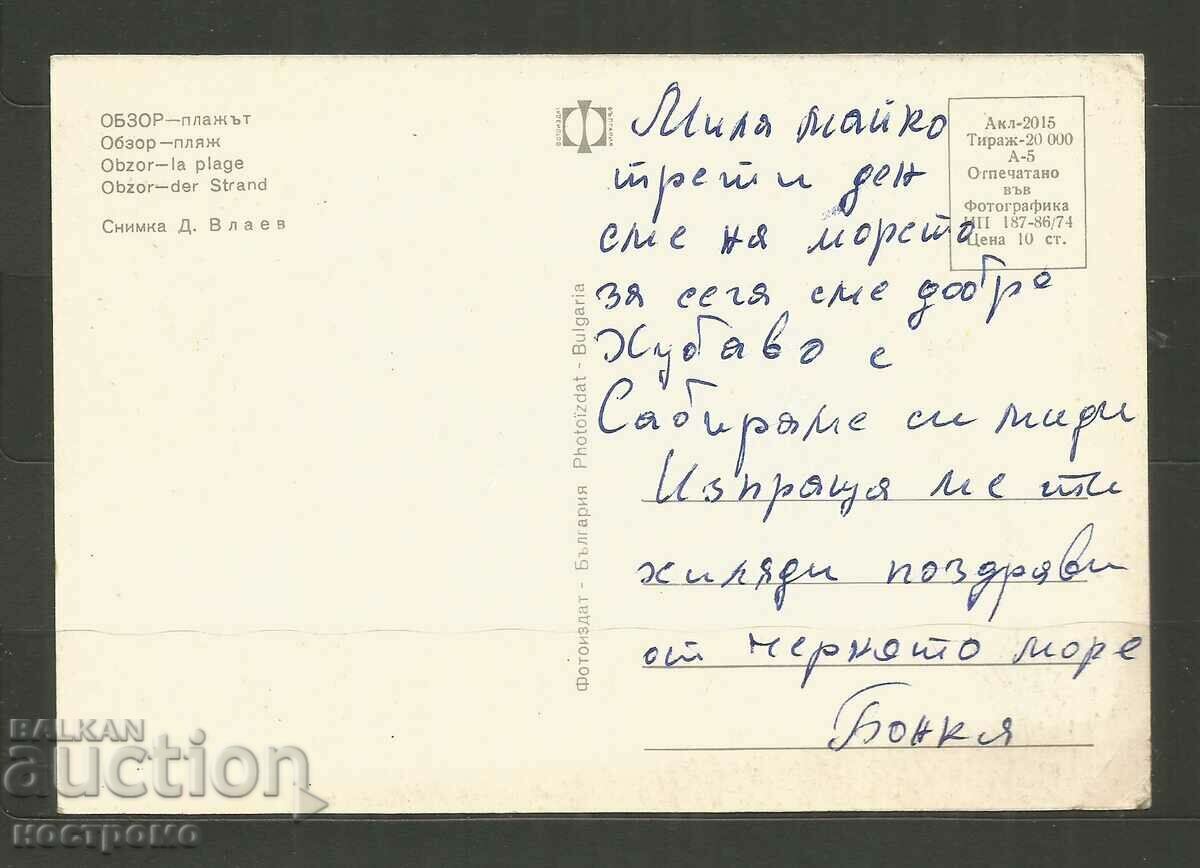 ОБЗОР—плажът
Обзор—пляж
Obzor—la plage
Obzor—der Strand
Снимка Д. Влаев
ФОТОИЗДАТ
БЪЛГАРИЯ
Фотоиздат - България Photoïzdat - Bulgaria
Акл-2015
Тираж-20 000
А-5
Отпечатано
във
Фотографика
ИП 187-86/74
Цена 10 ст.
Мила майко
трети ден
сме на морето
за сега сме добре
Хубаво е
Сабираме си миди
Изпраща ме ти
хиляди поздрави
от Черното море
Бонка
BALKAN
auction
костромо